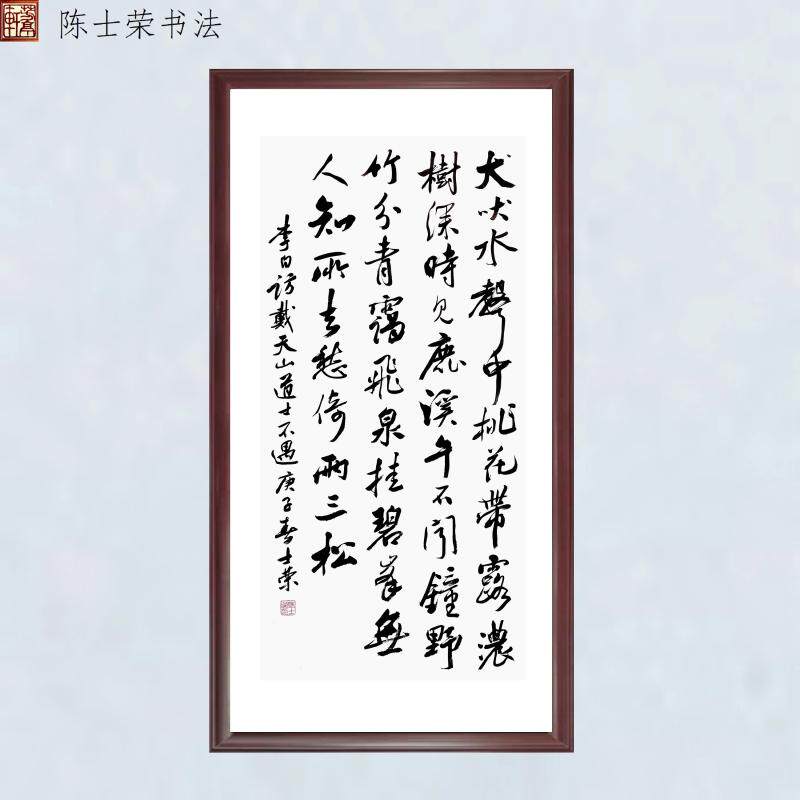 陈士荣书法
犬吠水聲中桃花帶露濃
樹深時見鹿溪午不闻鐘野
竹分青靄飛泉挂碧峯無
人知所去愁倚兩三松
李白访戴天山道士不遇庚子春士荣